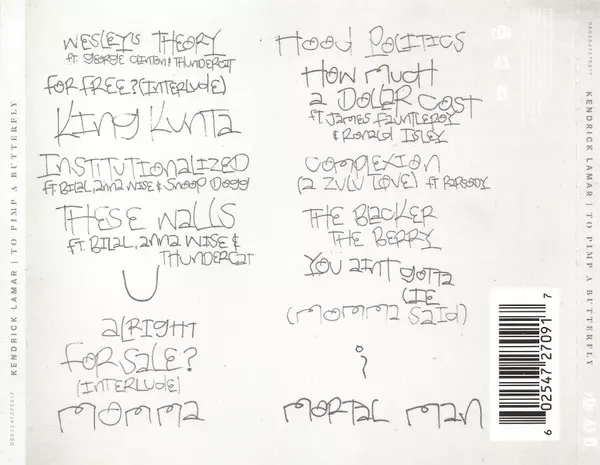 KENDRICK LAMAR | TO PIMP A BUTTERFLY
WESLEY'S THEORY
ft. GEORGE CLINTON & THUNDERCAT
FOR FREE? (INTERLUDE)
KING KUNTA
INSTITUTIONALIZED
ft BILAL, anna WISE & SNOOP DOGG
THESE WALLS
ft. BILAL, anna WISE &
THUNDERCAT
U
aLRIGHT
FOR SALE?
(INTERLUDE)
MOMMA
HOOD POLITICS
HOW MUCH
a DOLLAR COST
ft. JAMES FAUNTLEROY
& RONALD ISLEY
COMPLEXION
(a ZULU LOVE) ft RAPSODY
THE BLACKER
THE BERRY
YOU aINT GOTTA
LIE
(MOMMA SAID)
i
MORTAL MAN
6 02547 27091 7
KENDRICK LAMAR | TO PIMP A BUTTERFLY